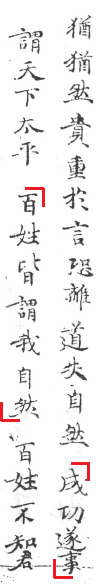 猶猶然貴重於言恐離道失自然成功遂事
謂天下太平百姓皆謂我自然百姓不知君